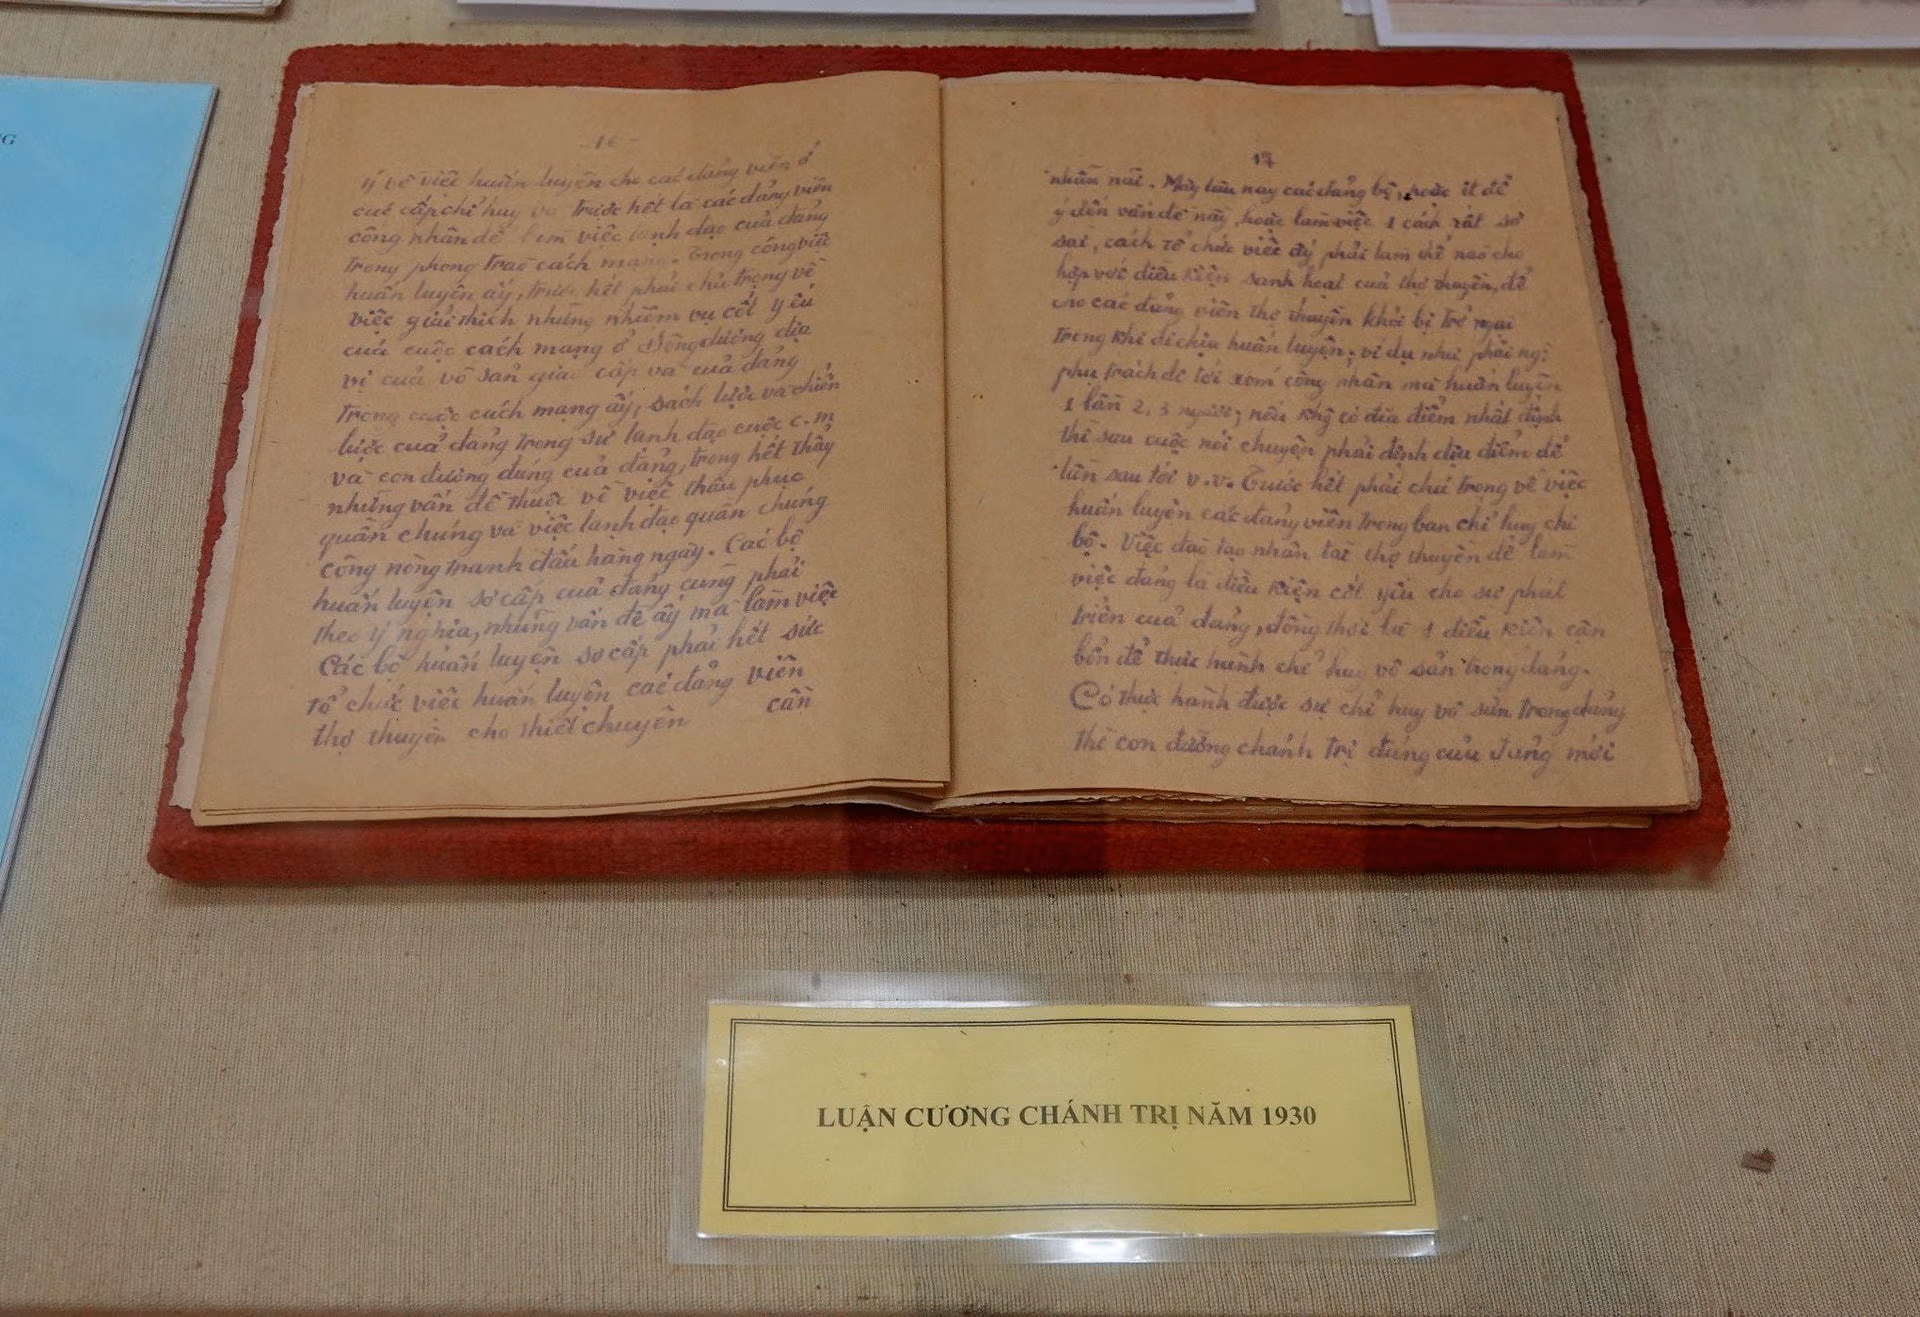 G
- 16 -
ý về việc huấn luyện cho các đảng viên ở
các cấp chỉ huy và trước hết là các đảng viên
công nhân để làm việc lãnh đạo của đảng
trong phong trào cách mạng. Trong công việc
huấn luyện ấy, trước hết phải chú trọng về
việc giải thích những nhiệm vụ cốt yếu
của cuộc cách mạng ở Đông dương địa
vị của vô sản giai cấp và của đảng
trong cuộc cách mạng ấy, sách lược và chiến
lược của đảng trong sự lãnh đạo cuộc c.m
và con đường đúng của đảng, trong hết thẩy
những vấn đề thuộc về việc thâu phục
quần chúng và việc lãnh đạo quần chúng
công nông tranh đấu hàng ngày. Các bộ
huấn luyện sơ cấp của đảng cũng phải
theo ý nghĩa, những vấn đề ấy mà làm việc
Các bộ huấn luyện sơ cấp phải hết sức
tổ chức việc huấn luyện các đảng viên
thợ thuyền cho thiết chuyên cần
17
nhẫn nại. Mấy lâu nay các đảng bộ, hoặc ít để
ý đến vấn đề này, hoặc làm việc 1 cách rất sơ
sài, cách tổ chức việc ấy phải làm thế nào cho
hợp với điều kiện sanh hoạt của thợ thuyền, để
cho các đảng viên thợ thuyền khỏi bị trở ngại
trong khi đi chịu huấn luyện; ví dụ như phái ng:
phụ trách để tới xóm công nhân mà huấn luyện
1 lần 2, 3 người; nếu khg có địa điểm nhất định
thì sau cuộc nói chuyện phải định địa điểm để
lần sau tới v.v. Trước hết phải chú trọng về việc
huấn luyện các đảng viên trong ban chỉ huy chi
bộ. Việc đào tạo nhân tài thợ thuyền để làm
việc đảng là điều kiện cốt yếu cho sự phát
triển của đảng, đồng thời là 1 điều kiện căn
bổn để thực hành chỉ huy vô sản trong đảng.
Có thực hành được sự chỉ huy vô sản trong đảng
thì con đường chánh trị đúng của đảng mới
LUẬN CƯƠNG CHÁNH TRỊ NĂM 1930